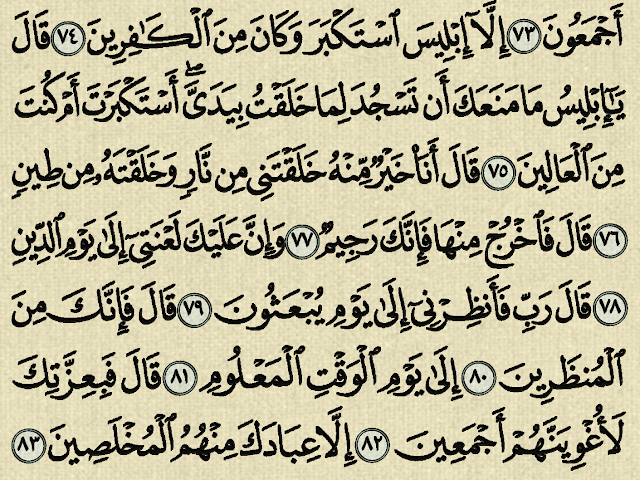 أَجْمَعُونَ ٧٣ إِلَّآ إِبْلِيسَ ٱسْتَكْبَرَ وَكَانَ مِنَ ٱلْكَٰفِرِينَ ٧٤ قَالَ
يَٰٓإِبْلِيسُ مَا مَنَعَكَ أَن تَسْجُدَ لِمَا خَلَقْتُ بِيَدَىَّۖ أَسْتَكْبَرْتَ أَمْ كُنتَ
مِنَ ٱلْعَالِينَ ٧٥ قَالَ أَنَا۠ خَيْرٌ مِّنْهُ خَلَقْتَنِى مِن نَّارٍ وَخَلَقْتَهُۥ مِن طِينٍ
٧٦ قَالَ فَٱخْرُجْ مِنْهَا فَإِنَّكَ رَجِيمٌ ٧٧ وَإِنَّ عَلَيْكَ لَعْنَتِىٓ إِلَىٰ يَوْمِ ٱلدِّينِ
٧٨ قَالَ رَبِّ فَأَنظِرْنِىٓ إِلَىٰ يَوْمِ يُبْعَثُونَ ٧٩ قَالَ فَإِنَّكَ مِنَ
ٱلْمُنظَرِينَ ٨٠ إِلَىٰ يَوْمِ ٱلْوَقْتِ ٱلْمَعْلُومِ ٨١ قَالَ فَبِعِزَّتِكَ
لَأُغْوِيَنَّهُمْ أَجْمَعِينَ ٨٢ إِلَّا عِبَادَكَ مِنْهُمُ ٱلْمُخْلَصِينَ ٨٣